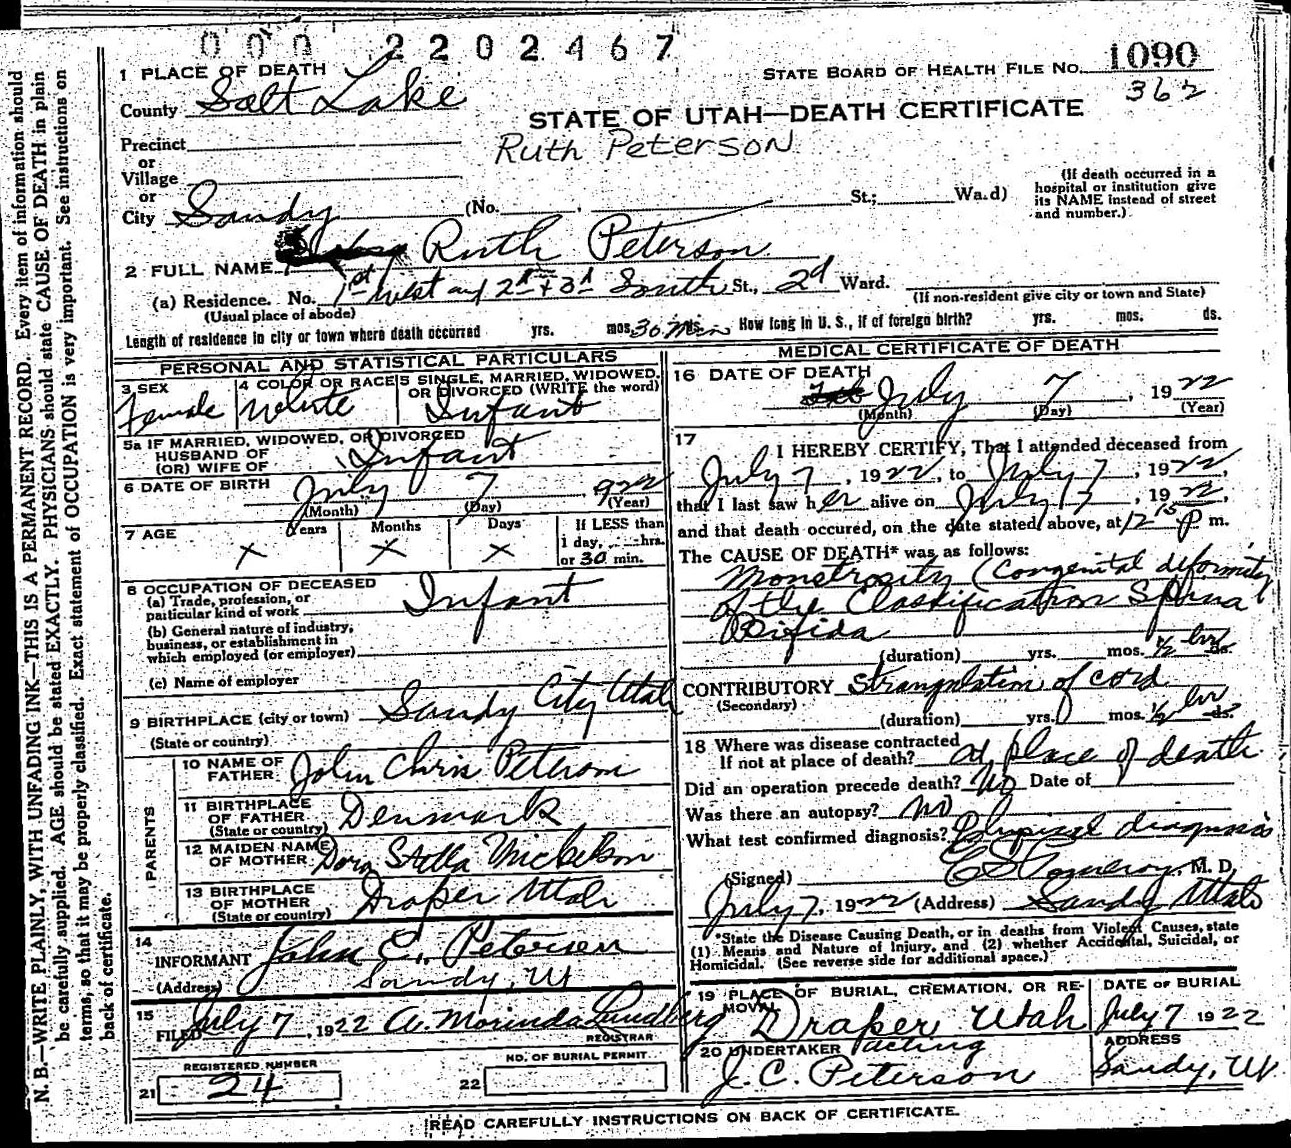 000 2202467
1 PLACE OF DEATH
STATE BOARD OF HEALTH FILE NO. 1090
County Salt Lake
362
STATE OF UTAH—DEATH CERTIFICATE
Ruth Peterson
Precinct
or
Village
or
City Sandy (No. , St.; Wa.d)
(If death occurred in a
hospital or institution give
its NAME instead of street
and number.)
2 FULL NAME Ruth Peterson
(a) Residence. No. 1st West and 2nd + 3d South St., 2d Ward.
(Usual place of abode)
(If non-resident give city or town and State)
Length of residence in city or town where death occurred yrs. mos. 30 Min How long in U. S., if of foreign birth? yrs. mos. ds.
PERSONAL AND STATISTICAL PARTICULARS
3 SEX Female
4 COLOR OR RACE White
5 SINGLE, MARRIED, WIDOWED,
OR DIVORCED (WRITE the word)
Infant
5a IF MARRIED, WIDOWED, OR DIVORCED
HUSBAND OF
(OR) WIFE OF Infant
6 DATE OF BIRTH July 7, 922
(Month) (Day) (Year)
7 AGE Years x Months x Days x
If LESS than
1 day, --hrs.
or 30 min.
8 OCCUPATION OF DECEASED
(a) Trade, profession, or
particular kind of work Infant
(b) General nature of industry,
business, or establishment in
which employed (or employer)
(c) Name of employer
9 BIRTHPLACE (city or town) Sandy City Utah
(State or country)
PARENTS
10 NAME OF
FATHER John Chris Peterson
11 BIRTHPLACE
OF FATHER Denmark
(State or country)
12 MAIDEN NAME
OF MOTHER Dora Stella Mickelson
13 BIRTHPLACE
OF MOTHER Draper Utah
(State or country)
14
INFORMANT John C. Petersen
(Address) Sandy, Ut
15
FILED July 7, 1922 A. Morinda Lundberg
REGISTRAR
REGISTERED NUMBER
21 24
NO. OF BURIAL PERMIT
22
MEDICAL CERTIFICATE OF DEATH
16 DATE OF DEATH
July 7, 1922
(Month) (Day) (Year)
17
I HEREBY CERTIFY, That I attended deceased from
July 7, 1922, to July 7, 1922,
that I last saw her alive on July 7, 1922,
and that death occured, on the date stated above, at 12 15 P m.
The CAUSE OF DEATH* was as follows:
Monstrosity (Congenital deformity
of the Classification Spina
Bifida
(duration) yrs. mos. 1/2 hr ds.
CONTRIBUTORY Strangulation of cord
(Secondary)
(duration) yrs. mos. 1/2 hr ds.
18 Where was disease contracted
If not at place of death? At place of death
Did an operation precede death? No Date of
Was there an autopsy? No
What test confirmed diagnosis? Physical diagnosis
(Signed) M. D.
July 7, 1922 (Address) Sandy Utah
*State the Disease Causing Death, or in deaths from Violent Causes, state
(1) Means and Nature of Injury, and (2) whether Accidental, Suicidal, or
Homicidal. (See reverse side for additional space.)
19 PLACE OF BURIAL, CREMATION, OR RE-
MOVAL Draper Utah
DATE OF BURIAL
July 7 1922
20 UNDERTAKER acting
J. C. Peterson
ADDRESS
Sandy, Ut.
READ CAREFULLY INSTRUCTIONS ON BACK OF CERTIFICATE.
N. B.—WRITE PLAINLY, WITH UNFADING INK—THIS IS A PERMANENT RECORD. Every item of information should
be carefully supplied. AGE should be stated EXACTLY. PHYSICIANS should state CAUSE OF DEATH in plain
terms, so that it may be properly classified. Exact statement of OCCUPATION is very important. See instructions on
back of certificate.